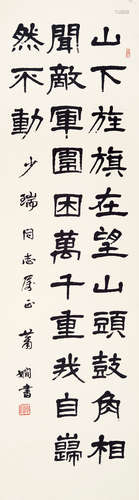 山下旌旗在望山頭鼓角相
聞敵軍圍困萬千重我自巋
然不動
少瑞同志屬正 蕭嫻書